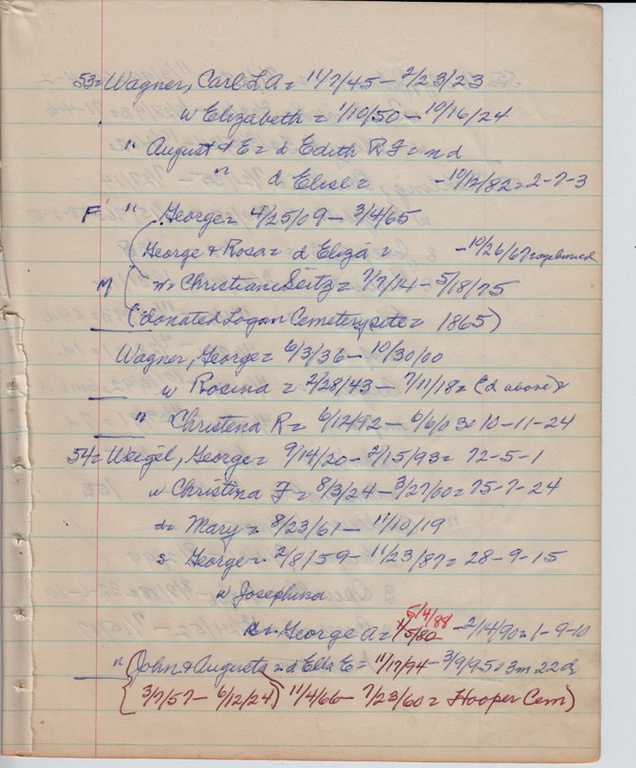 53= Wagner, Carl L A = 11/7/45 - 2/23/23
w Elizabeth = 1/10/50 - 10/16/24
" August & E = d Edith R F = n d
" d Elise = - 10/12/82 = 2-7-3
F " George = 4/25/09 - 3/4/65
(George & Rosa = d Eliza = - 10/26/67 = unnamed
M w = Christiane Seitz = 7/7/14 - 5/18/75
(donated Logan Cemetery site = 1865)
Wagner, George = 6/3/36 - 10/30/00
w Rosina = 2/28/43 - 7/11/18 = (d above)
" Christena R = 6/12/92 - 6/6/03 = 10-11-24
54= Weigel, George = 9/14/20 - 2/15/93 = 72-5-1
w Christina F = 8/3/24 - 3/27/00 = 75-7-24
d = Mary = 8/23/61 - 11/10/19
s George = 2/8/59 - 11/23/87 = 28-9-15
w Josephina
5/4/88
s = George A = 1/5/82 - 2/14/90 = 1-9-10
" (John & Augusta = d Ella E = 11/17/94 - 3/9/95 = 3m 22d
(3/7/57 - 6/12/24) 11/4/66 - 7/23/60 = Hooper Cem)